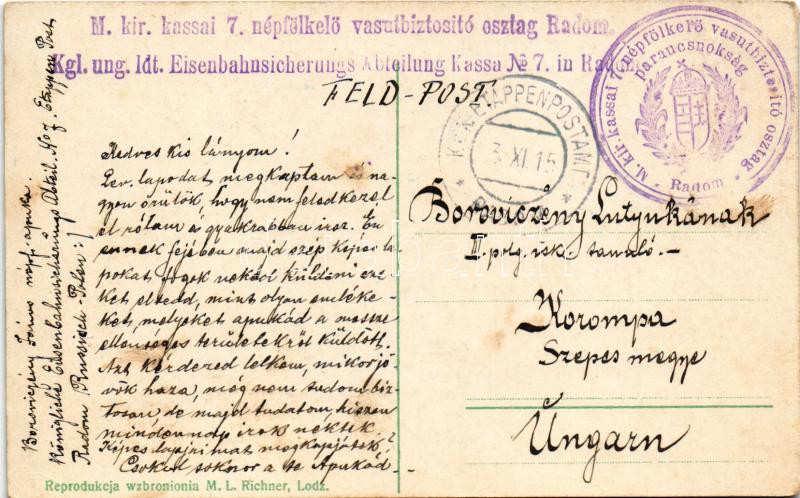 M. kir. kassai 7. népfölkelő vasutbiztositó osztag Radom.
Kgl. ung. ldt. Eisenbahnsicherungs Abteilung Kassa № 7. in Radom
FELD-POST
K.u.K. ETAPPENPOSTAMT
3. XI. 15
M. kir. kassai 7. népfölkelő vasutbiztositó osztag
parancsnokság
Radom
Kedves kis lányom!
Lev. lapodat megkaptam és na-
gyon örülök, hogy nem feledkezel
el rólam és gyakrabban irsz. Én
ennek fejében majd szép képes la-
pokat fogok neked küldeni eze-
ket eltedd, mint olyan emléke-
ket, melyeket apukád a messze
ellenséges területekről küldött.
Azt kérdezed lelkem, mikor jö-
vök haza, még nem tudom biz-
tosan de majd tudatom, hiszen
minden nap irok nektek.
Képes lapjaimat megkapjátok?
Csókol sokszor a te Apukád
Boroviczény János népf. apuka.
Königliche Eisenbahnsicherungs Abteil. No 7. Etappen Post
Radom Russisch Polen
Boroviczény Lutynkának
III polg. isk. tanuló.
Korompa
Szepes megye
Ungarn
Reprodukcja wzbronionia M. L. Richner, Lodz.